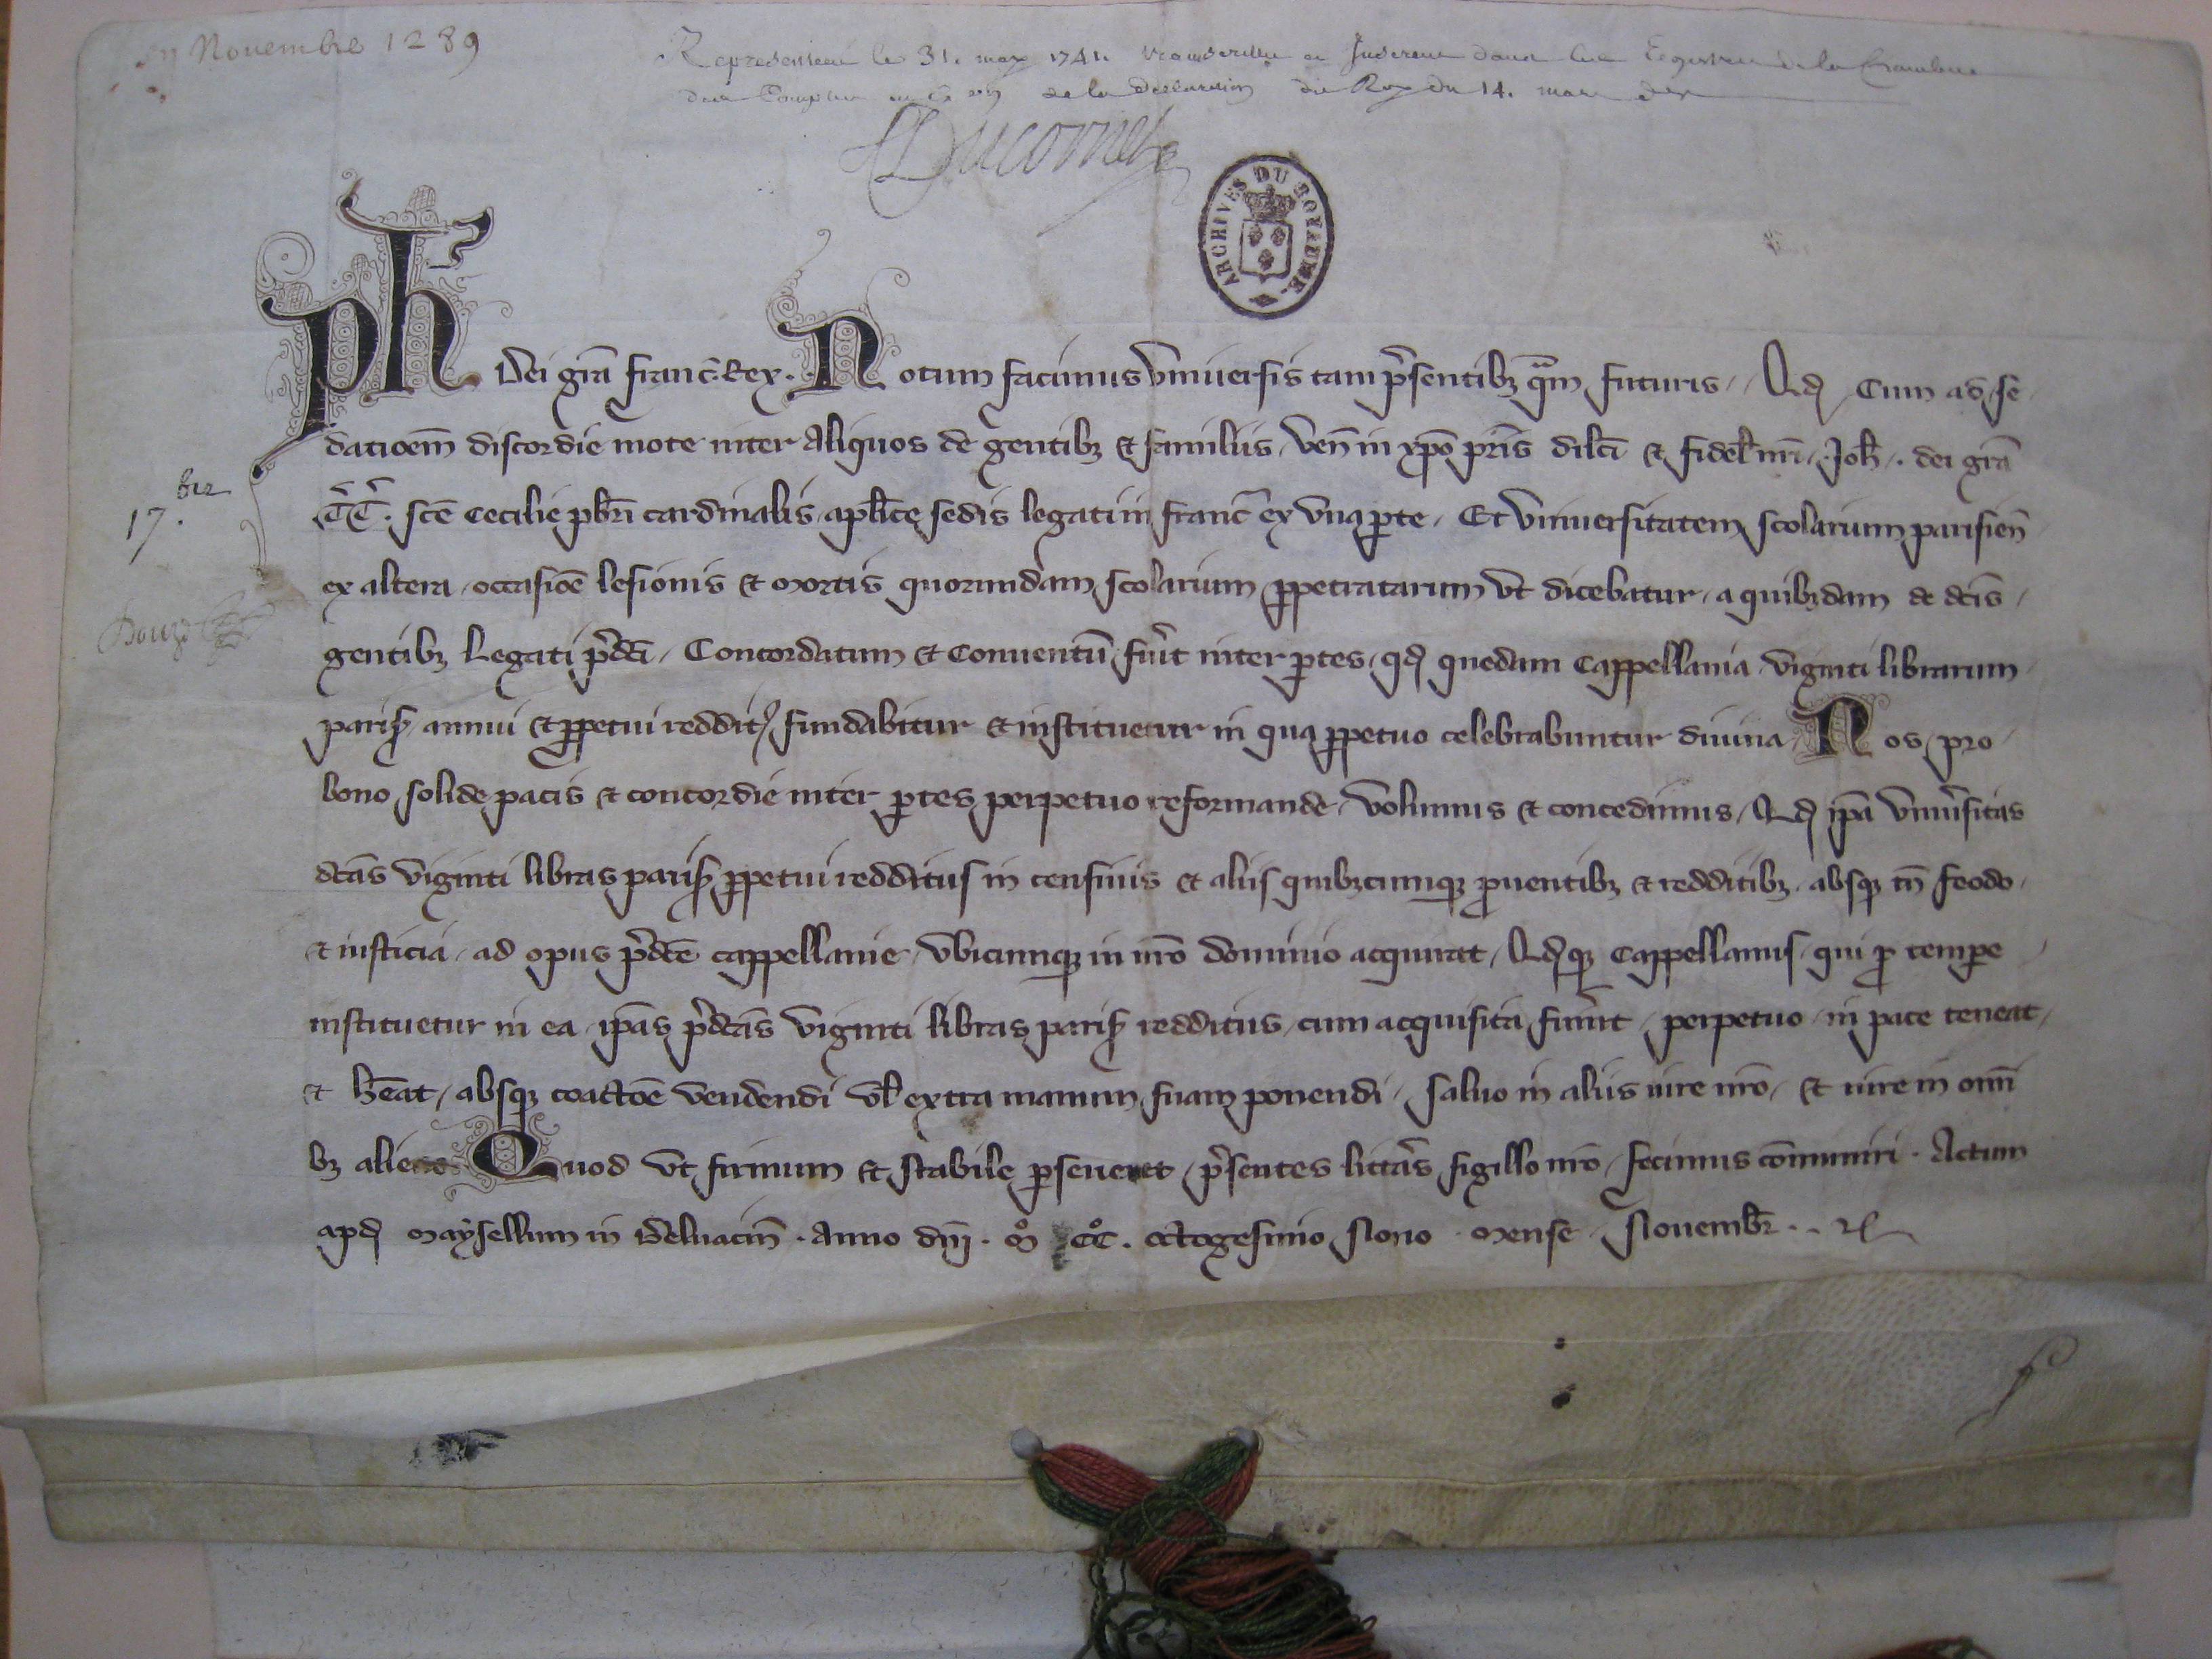 en Novembre 1289
Representé le 31. may 1741.
de la Declaration du Roy du 14. mars der
Ducornet
ARCHIVES DU ROYAUME
Ph. Dei gr̄a franc̄. Rex. Notum facimus Vniuersis tam p̄sentib; q̄m futuris, Qđ Cum ad se
datioem̄ discordie mote inter aliquos de gentib; ⁊ familiis, Ven̄ in xp̄o pr̄is dilc̄i ⁊ fidel̄ nr̄i, Joh̄. dei gr̄a
t̄t̄. sc̄e Cecilie pb̄ri cardinalis, apl̄ice sedis legati in franc̄ ex vna ꝑte, Et Vniuersitatem scolarium parisien̄
ex altera, occasiōe lesionis ⁊ mortis quorumdam scolarium ꝑpetratarum vt dicebatur, a quib;dam de dc̄is,
gentib; Legati p̄dc̄i, Concordatum ⁊ Conuentū fūit inter ꝑtes, qđ quedam Cappellania Viginti librarum
paris̄, annui ⁊ ꝑpetui reddit᷒, fundabitur ⁊ instituetur in qua ꝑpetuo celebrabuntur diuina, Nos, pro
bono solide pacis ⁊ concordie inter ꝑtes perpetuo reformande, Volumus ⁊ concedimus, Qđ ip̄a Vniūsitas
dc̄as Viginti libras paris̄ ꝑpetui redditus in censiuis ⁊ aliis quib;cumq; ꝓuentib; ⁊ redditib;, absq; tn̄ feodo,
⁊ iusticia, ad opus p̄dc̄e cappellanie, Vbicumq; in nr̄o dominio acquirat, Qđq; Cappellanus, qui ꝓ tempe
instituetur in ea, ip̄as p̄dc̄as Viginti libras paris̄ redditus, cum acquisita fūint, perpetuo in pace teneat,
⁊ hēat, absq; coactōe vendendi vl̄ extra manum suam ponendi, Saluo in aliis iure nr̄o, ⁊ iure in om̄i
b; alieno. Quod vt firmum ⁊ stabile ꝑseueret, p̄sentes litt̄as sigillo nr̄o, fecimus cōmuniri. Actum
apđ Maysellum in Beluacin̄. Anno dn̄i. M̊ C̊C. Octogesimo Nono mense Nouembr̄.
17. bis